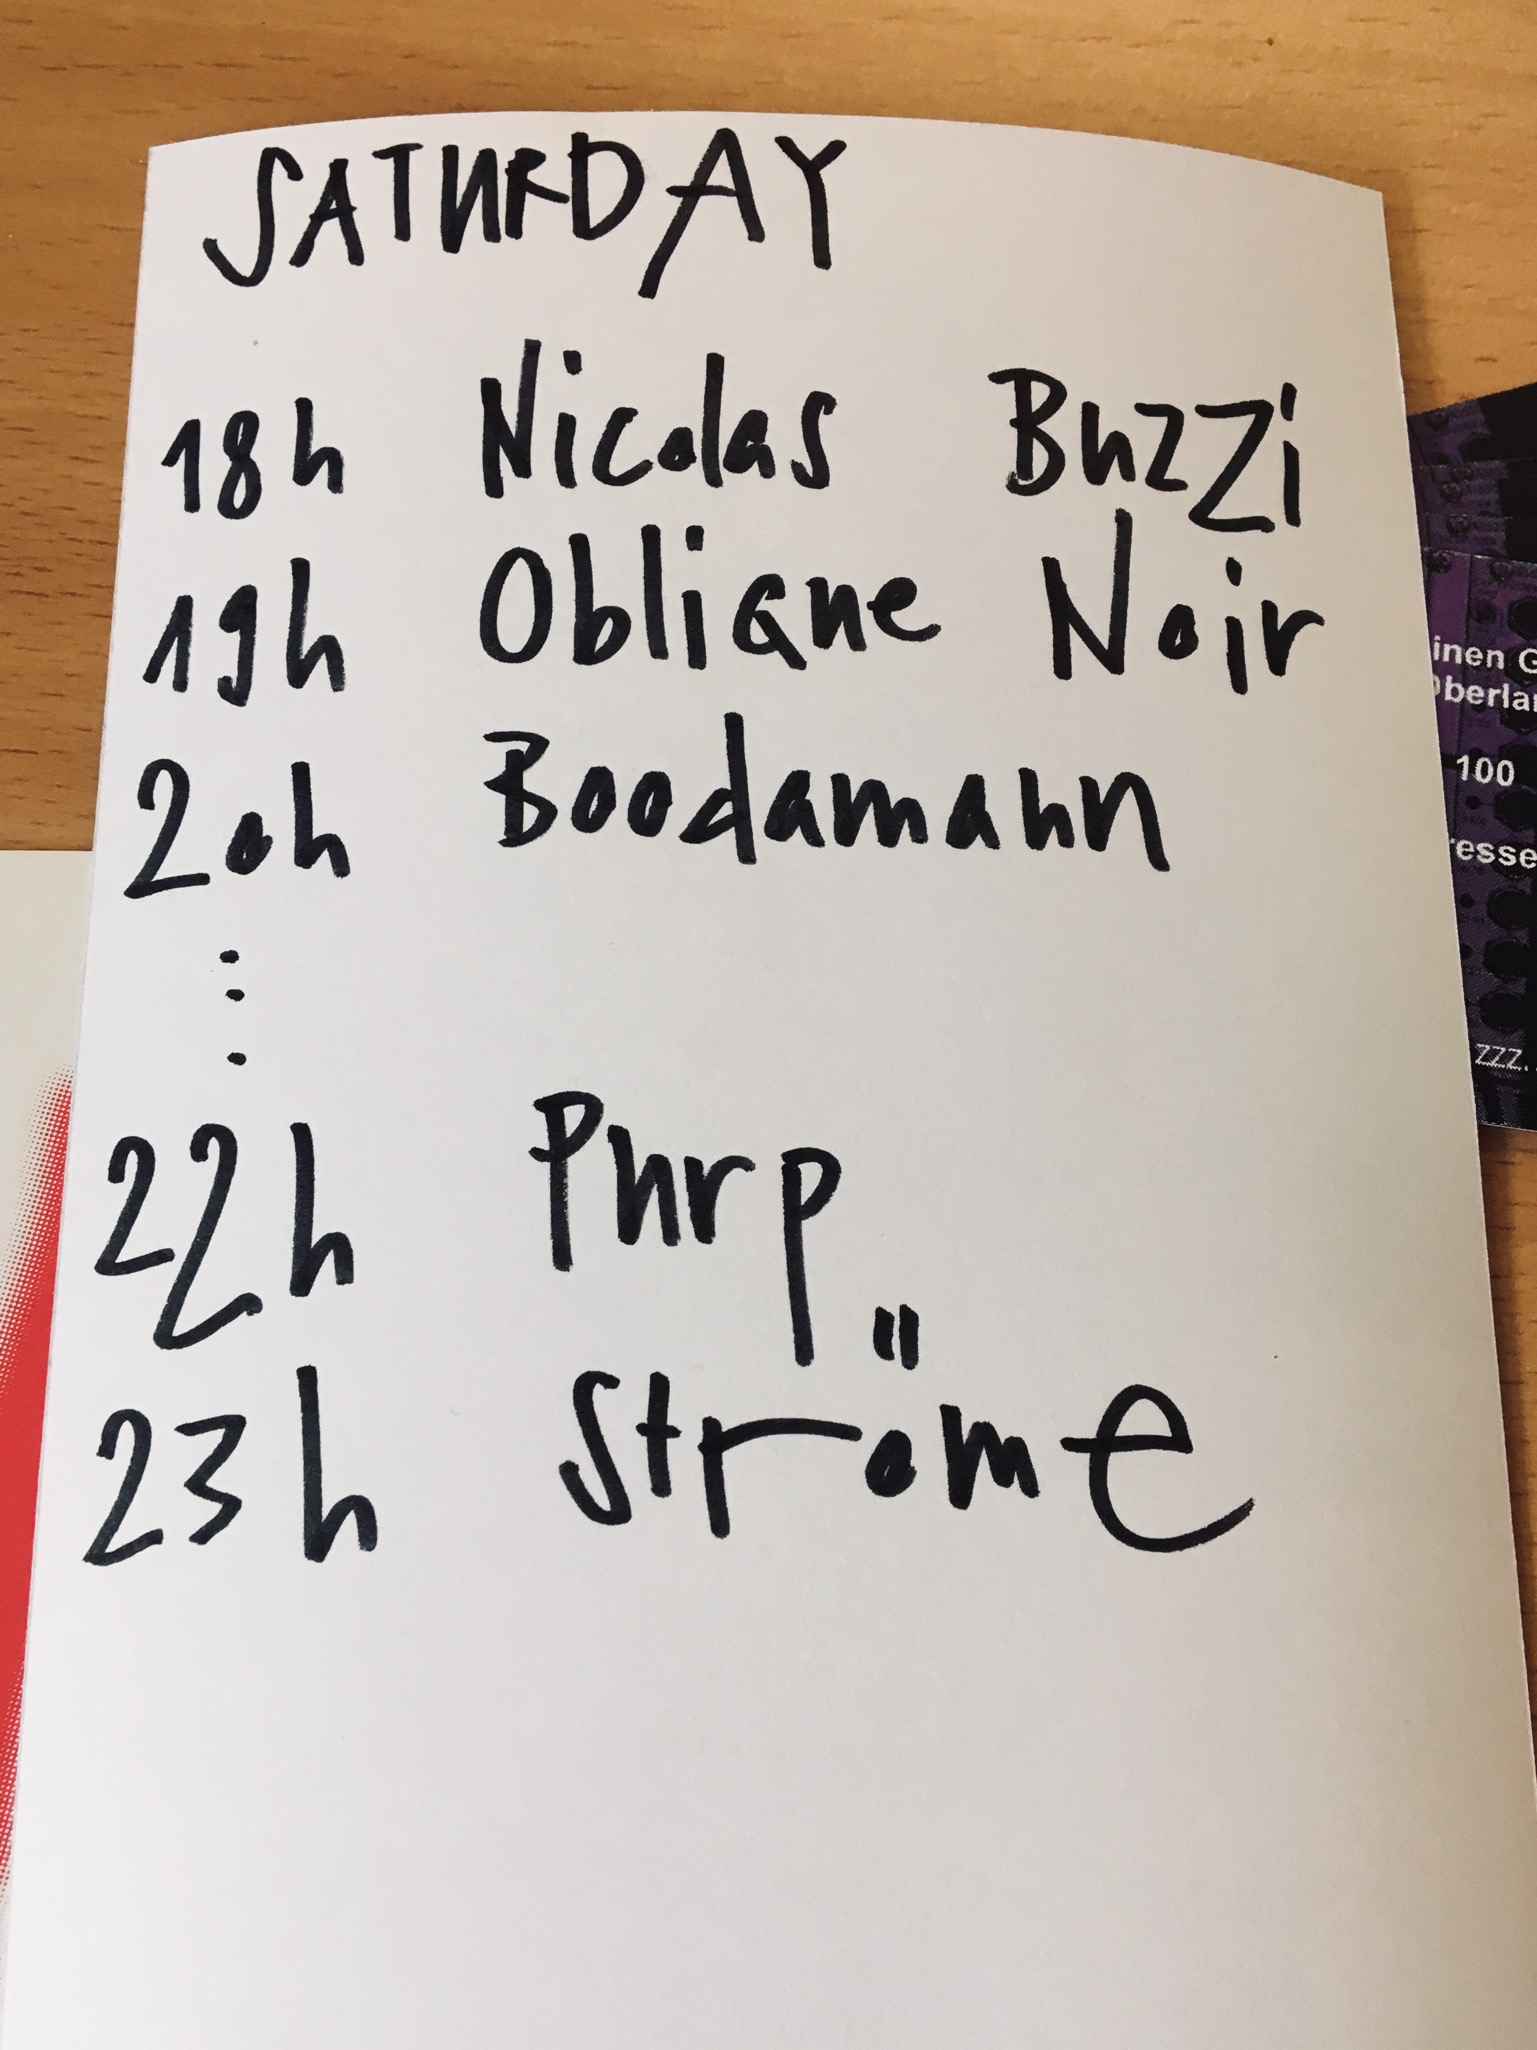 SATURDAY
18h Nicolas Buzzi
19h Oblique Noir
20h Boodamann
⋮
22h Purp
23h Ströme
inen G
Oberlan
100
resse
zzz.